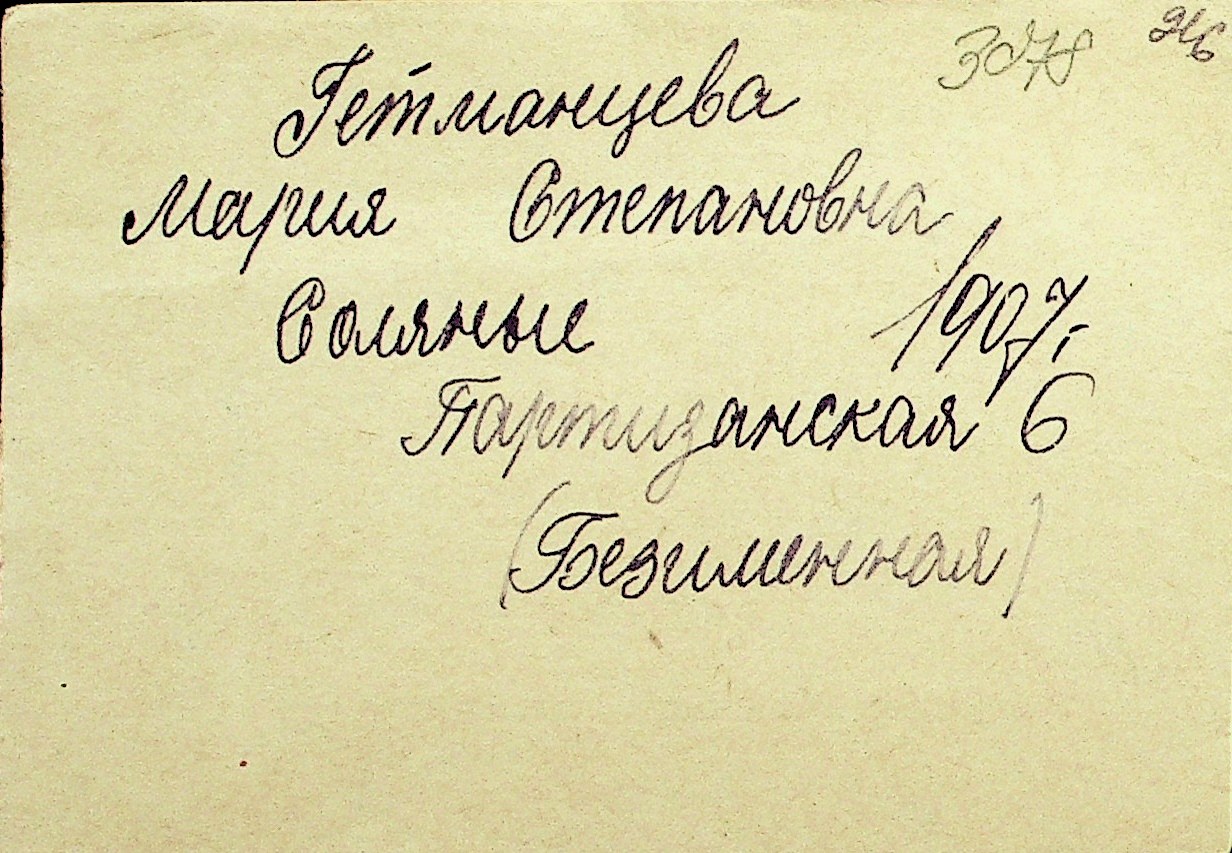 Гетманцева
Мария Степановна
Соляные 1907г.
Партизанская 6
(Безименная)